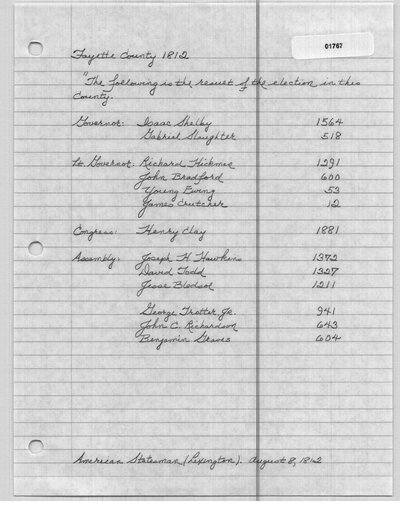 01767
Fayette County 1812
"The following is the result of the election in this
County.
Governor: Isaac Shelby 1564
Gabriel Slaughter 518
Lt. Governor: Richard Hickman 1291
John Bradford 600
Young Ewing 53
James Crutcher 12
Congress: Henry Clay 1881
Assembly: Joseph H. Hawkins 1372
David Todd 1327
Jesse Bledsoe 1211
George Trotter Jr. 941
John C. Richardson 643
Benjamin Graves 604
American Statesman (Lexington). August 8, 1812